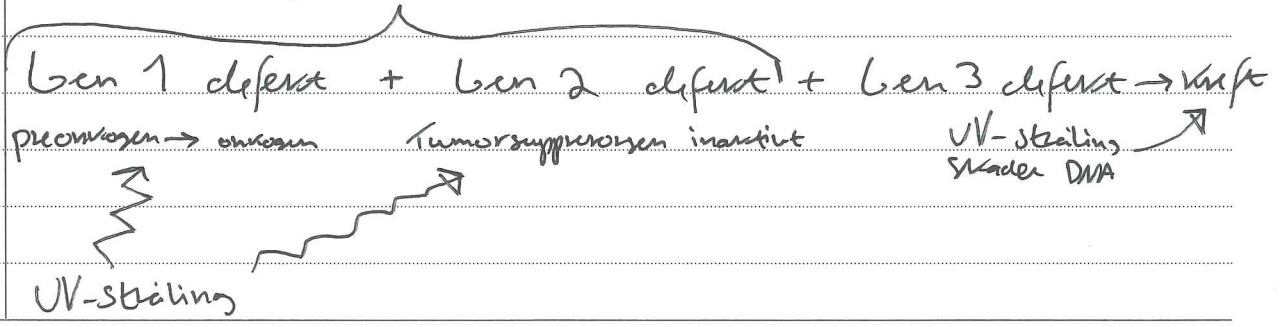 Gen 1 defekt + Gen 2 defekt + Gen 3 defekt → kreft
preonkogen → onkogen Tumorsuppressorgen inaktivt UV-stråling
skader DNA
UV-stråling